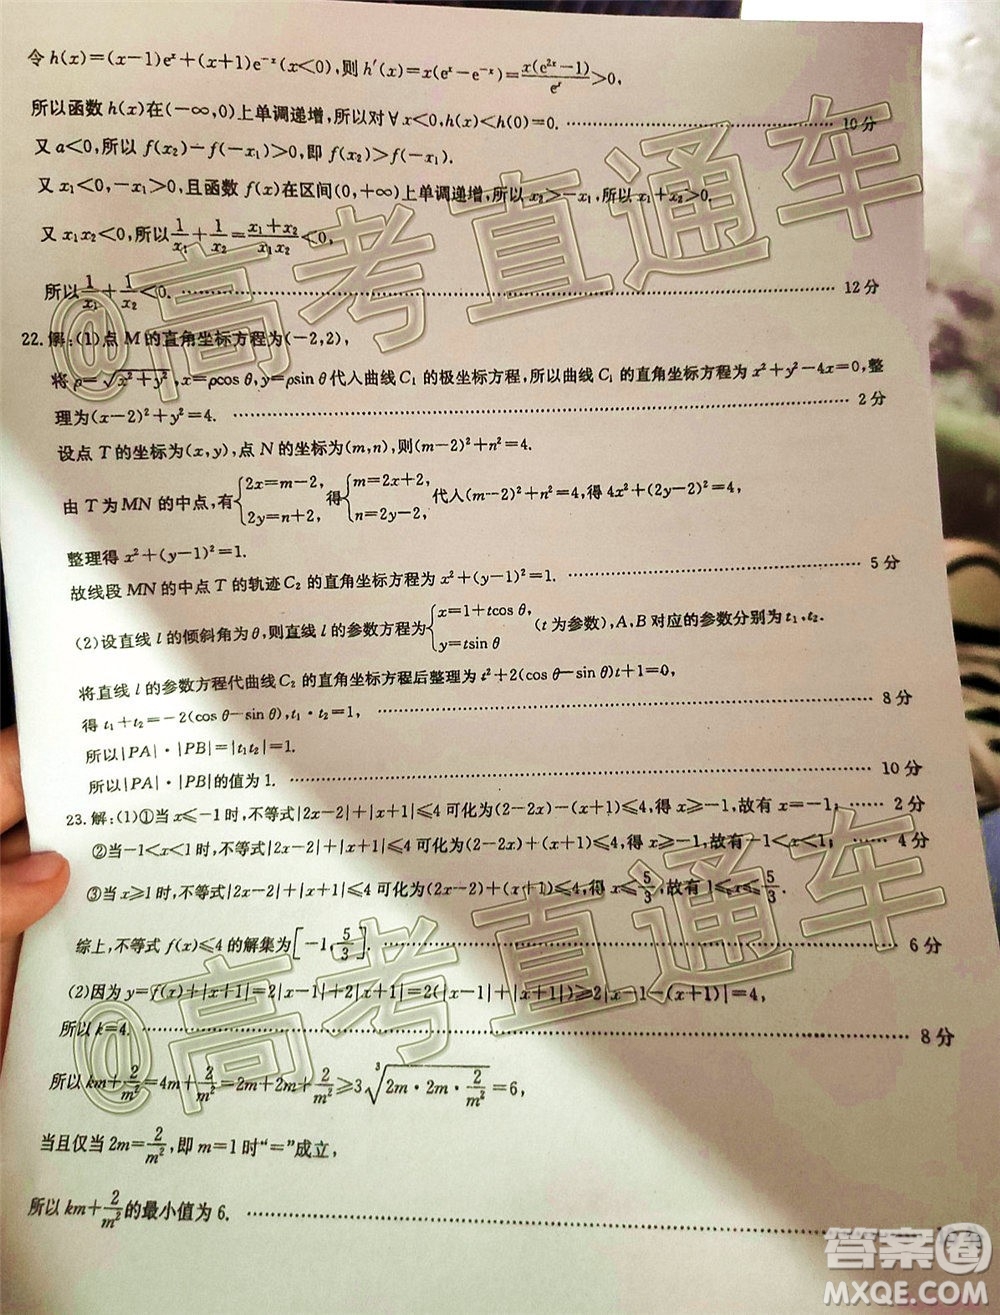 令 h(x)=(x-1)eˣ+(x+1)e⁻ˣ(x<0),则 h′(x)=x(eˣ-e⁻ˣ)=x(e²ˣ-1)/eˣ>0,
所以函数 h(x)在(-∞,0)上单调递增,所以对∀x<0,h(x)<h(0)=0. 10分
又 a<0,所以 f(x₂)-f(-x₁)>0,即 f(x₂)>f(-x₁).
又 x₁<0,-x₁>0,且函数 f(x)在区间(0,+∞)上单调递增,所以 x₂>-x₁,所以 x₁+x₂>0.
又 x₁x₂<0,所以 1/x₁+1/x₂=(x₁+x₂)/(x₁x₂)<0,
所以 1/x₁+1/x₂<0. 12分
22.解:(1)点 M 的直角坐标方程为(-2,2),
将 ρ=√(x²+y²),x=ρcos θ,y=ρsin θ代入曲线 C₁ 的极坐标方程,所以曲线 C₁ 的直角坐标方程为 x²+y²-4x=0,整
理为(x-2)²+y²=4. 2分
设点 T 的坐标为(x,y),点 N 的坐标为(m,n),则(m-2)²+n²=4.
由 T 为 MN 的中点,有{2x=m-2, 2y=n+2,得{m=2x+2, n=2y-2,代入(m-2)²+n²=4,得 4x²+(2y-2)²=4,
整理得 x²+(y-1)²=1.
故线段 MN 的中点 T 的轨迹 C₂ 的直角坐标方程为 x²+(y-1)²=1. 5分
(2)设直线 l 的倾斜角为 θ,则直线 l 的参数方程为{x=1+tcos θ, y=tsin θ (t 为参数),A、B 对应的参数分别为 t₁、t₂.
将直线 l 的参数方程代曲线 C₂ 的直角坐标方程后整理为 t²+2(cos θ-sin θ)t+1=0,
得 t₁+t₂=-2(cos θ-sin θ),t₁·t₂=1, 8分
所以|PA|·|PB|=|t₁t₂|=1.
所以|PA|·|PB|的值为 1. 10分
23.解:(1)①当 x≤-1 时,不等式|2x-2|+|x+1|≤4 可化为(2-2x)-(x+1)≤4,得 x≥-1,故有 x=-1; 2分
②当-1<x<1 时,不等式|2x-2|+|x+1|≤4 可化为(2-2x)+(x+1)≤4,得 x≥-1,故有-1<x<1; 4分
③当 x≥1 时,不等式|2x-2|+|x+1|≤4 可化为(2x-2)+(x+1)≤4,得 x≤5/3,故有 1≤x≤5/3.
综上,不等式 f(x)≤4 的解集为[-1,5/3]. 6分
(2)因为 y=f(x)+|x+1|=2|x-1|+2|x+1|=2(|x-1|+|x+1|)≥2|x-1-(x+1)|=4,
所以 k=4. 8分
所以 km+2/m²=4m+2/m²=2m+2m+2/m²≥3∛(2m·2m·2/m²)=6,
当且仅当 2m=2/m²,即 m=1 时“=”成立,
所以 km+2/m² 的最小值为 6.
@高考直通车
@高考直通车
答案圈
MXQE.COM